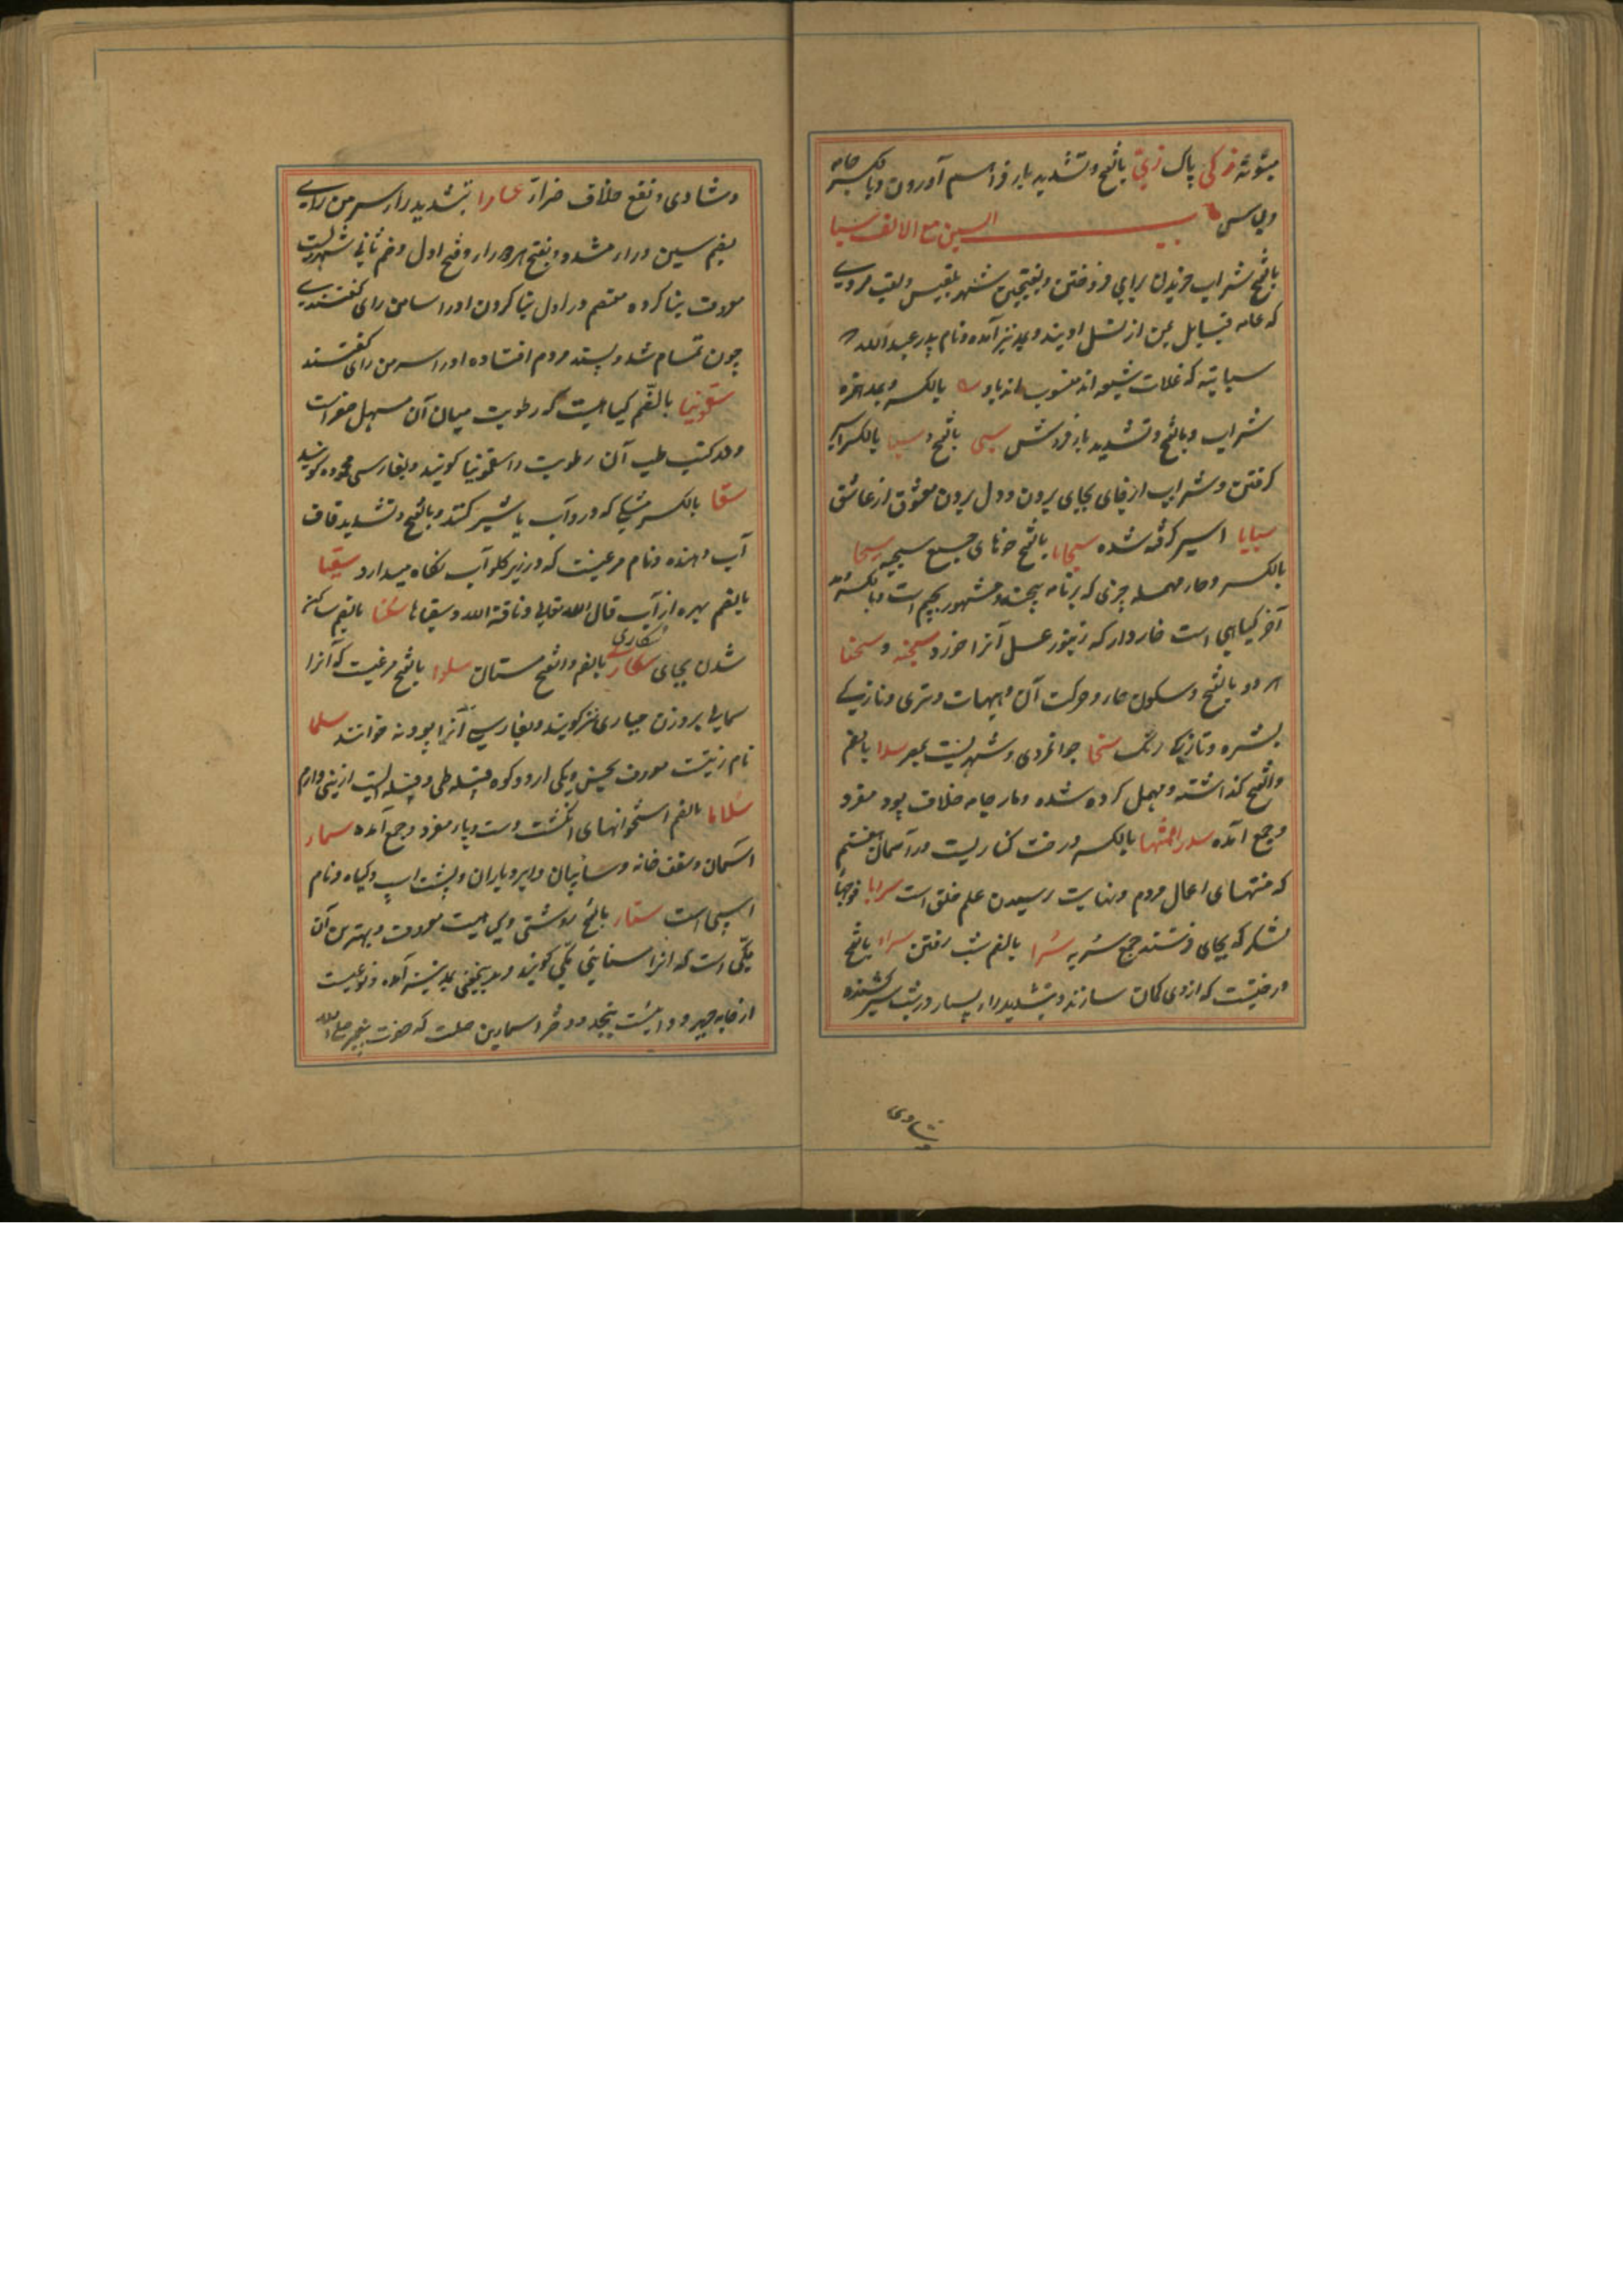 پاک زبی بالفتح و تشدید یا
وپلاس
السین مع الالف سبا
بالفتح شراب خریدن برای فروختن و بفتحتین شهر بلقیس و لقب مردی
که عامه قبایل یمن از نسل اویند و بمد نیز آمده و نام پدر عبدالله
سبایته که غلات شیعه اند منسوب اند باو بالکسر و بمد همزه
شراب و بالفتح و تشدید با فروش سبی بالفتح و سبا بالکسر اسیر
کرفتن و شراب از جای بجای بردن و دل بردن معشوق از عاشق
سبایا اسیر کرفته شده سجایا بالفتح خوهای جمع سجیه سحا
بالکسر و حار مهمله چیزی که بر نامه پیچند و مشهور بجیم است و بالکسر و مد
آخر کیاهی است خاردار که زنبور عسل آنرا خورد سحنه و سحنا
هر دو بالفتح و سکون حار و حرکت آن هیات و تری و نازکی
بشره و تازکی رنگ سخا جوانمردی و شهریست بمصر سدا بالضم
والفتح کذاشته و مهمل کرده شده و تار جامه خلاف پود مفرد
و جمع آمده سدرالمنتها بالکسر درخت کناریست در آسمان هفتم
که منتهای اعمال مردم و نهایت رسیدن علم خلق است سرایا فوجهای
لشکر که بجای فرستند جمع سریه سرا بالضم شب رفتن سراء بالفتح
درختیست که از وی کمان سازند و بتشدید راء بسیار در شب سیر کننده
وشادی
وشادی و نفع خلاف ضراء سامرا بتشدید را سر من رای
بضم سین و را مشدد و بفتح هر دو را و فتح اول و ضم ثانی شهریست
معروف بنا کرده معتصم در اول بنا کردن او را سامن رای کفتندی
چون تمام شد و پسند مردم افتاده او را سر من رای کفتند
سقمونیا بالضم کیاهیست که رطوبت میان آن مسهل صفراست
و در کتب طب آن رطوبت را سقمونیا کویند و بفارسی محموده کویند
سقا بالکسر مشکی که در و آب یا شیر کنند و بالفتح و تشدید قاف
آب دهنده و نام مرغیست که در زیر کلو آب نکاه میدارد سقیا
بالضم بهره از آب قال الله تعالی ناقة الله و سقیاها سکنا بالضم ساکن
شدن بجای سکاری بالضم و الفتح مستان سلوا بالفتح مرغیست که آنرا
سکاری
سمانی بر وزن حباری نیز کویند و بفارسی آنرا بودنه خوانند سلما
نام زنیست معروف بحسن و یکی از دو کوه قبیله طی و قبیله ایست از
سلاما بالضم استخوانهای انکشت دست و پا مفرد و جمع آمده سماء
آسمان و سقف خانه و سائبان و ابر و باران و پشت اسپ و کیاه و نام
اسپی است سناء بالفتح روشنی و کیاهیست معروف و بهترین آن
مکی است که آنرا سنای مکی کویند و نوعیست